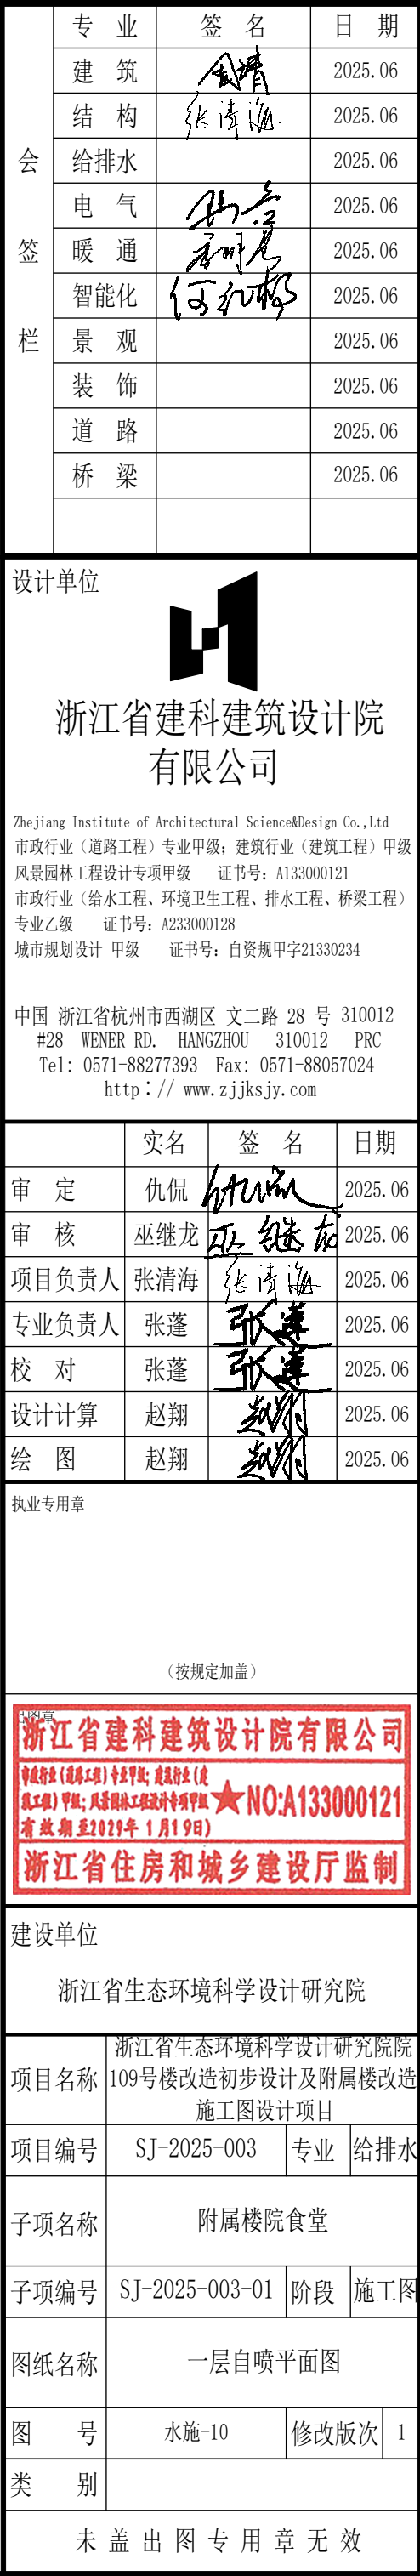 专 业 签 名 日 期
建 筑 2025.06
结 构 张清海 2025.06
给排水 2025.06
电 气 2025.06
暖 通 2025.06
智能化 2025.06
景 观 2025.06
装 饰 2025.06
道 路 2025.06
桥 梁 2025.06
会签栏
设计单位
浙江省建科建筑设计院
有限公司
Zhejiang Institute of Architectural Science&Design Co.,Ltd
市政行业（道路工程）专业甲级；建筑行业（建筑工程）甲级
风景园林工程设计专项甲级 证书号：A133000121
市政行业（给水工程、环境卫生工程、排水工程、桥梁工程）
专业乙级 证书号：A233000128
城市规划设计 甲级 证书号：自资规甲字21330234
中国 浙江省杭州市西湖区 文二路 28 号 310012
#28 WENER RD. HANGZHOU 310012 PRC
Tel: 0571-88277393 Fax: 0571-88057024
http：// www.zjjksjy.com
实名 签 名 日期
审 定 仇侃 仇侃 2025.06
审 核 巫继龙 巫继龙 2025.06
项目负责人 张清海 张清海 2025.06
专业负责人 张蓬 张蓬 2025.06
校 对 张蓬 张蓬 2025.06
设计计算 赵翔 赵翔 2025.06
绘 图 赵翔 赵翔 2025.06
执业专用章
（按规定加盖）
浙江省建科建筑设计院有限公司
市政行业(道路工程)专业甲级；建筑行业(建
筑工程)甲级；风景园林工程设计专项甲级
有效期至2029年1月19日)
★NO:A133000121
浙江省住房和城乡建设厅监制
建设单位
浙江省生态环境科学设计研究院
项目名称 浙江省生态环境科学设计研究院院
109号楼改造初步设计及附属楼改造
施工图设计项目
项目编号 SJ-2025-003 专业 给排水
子项名称 附属楼院食堂
子项编号 SJ-2025-003-01 阶段 施工图
图纸名称 一层自喷平面图
图 号 水施-10 修改版次 1
类 别
未盖出图专用章无效